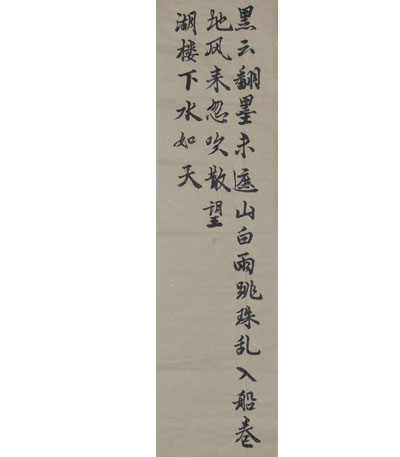 黑云翻墨未遮山白雨跳珠乱入船卷
地风来忽吹散望
湖楼下水如天